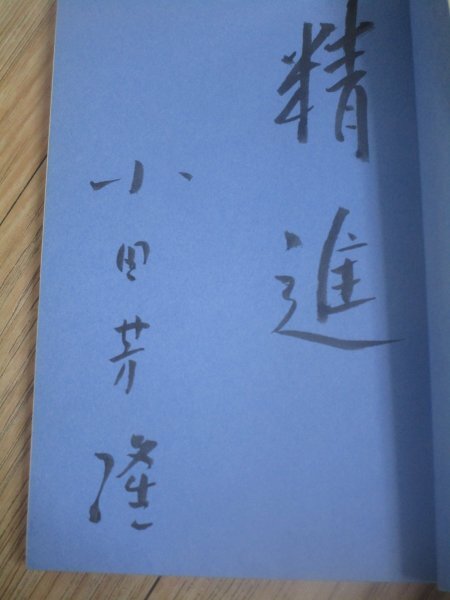 精進
小田芳隆